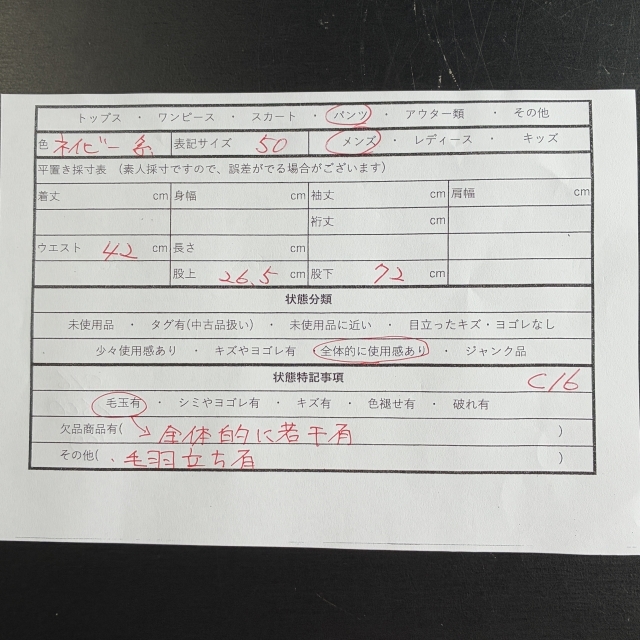 トップス ・ ワンピース ・ スカート ・ パンツ ・ アウター類 ・ その他
色 ネイビー系 表記サイズ 50 メンズ ・ レディース ・ キッズ
平置き採寸表 (素人採寸ですので、誤差がでる場合がございます)
着丈 cm 身幅 cm 袖丈 cm 肩幅 cm
裄丈 cm
ウエスト 42 cm 長さ cm
股上 26.5 cm 股下 72 cm
状態分類
未使用品 ・ タグ有(中古品扱い) ・ 未使用品に近い ・ 目立ったキズ・ヨゴレなし
少々使用感あり ・ キズやヨゴレ有 ・ 全体的に使用感あり ・ ジャンク品
状態特記事項 C16
毛玉有 ・ シミやヨゴレ有 ・ キズ有 ・ 色褪せ有 ・ 破れ有
欠品商品有( 全体的に若干有 )
その他( ・毛羽立ち有 )